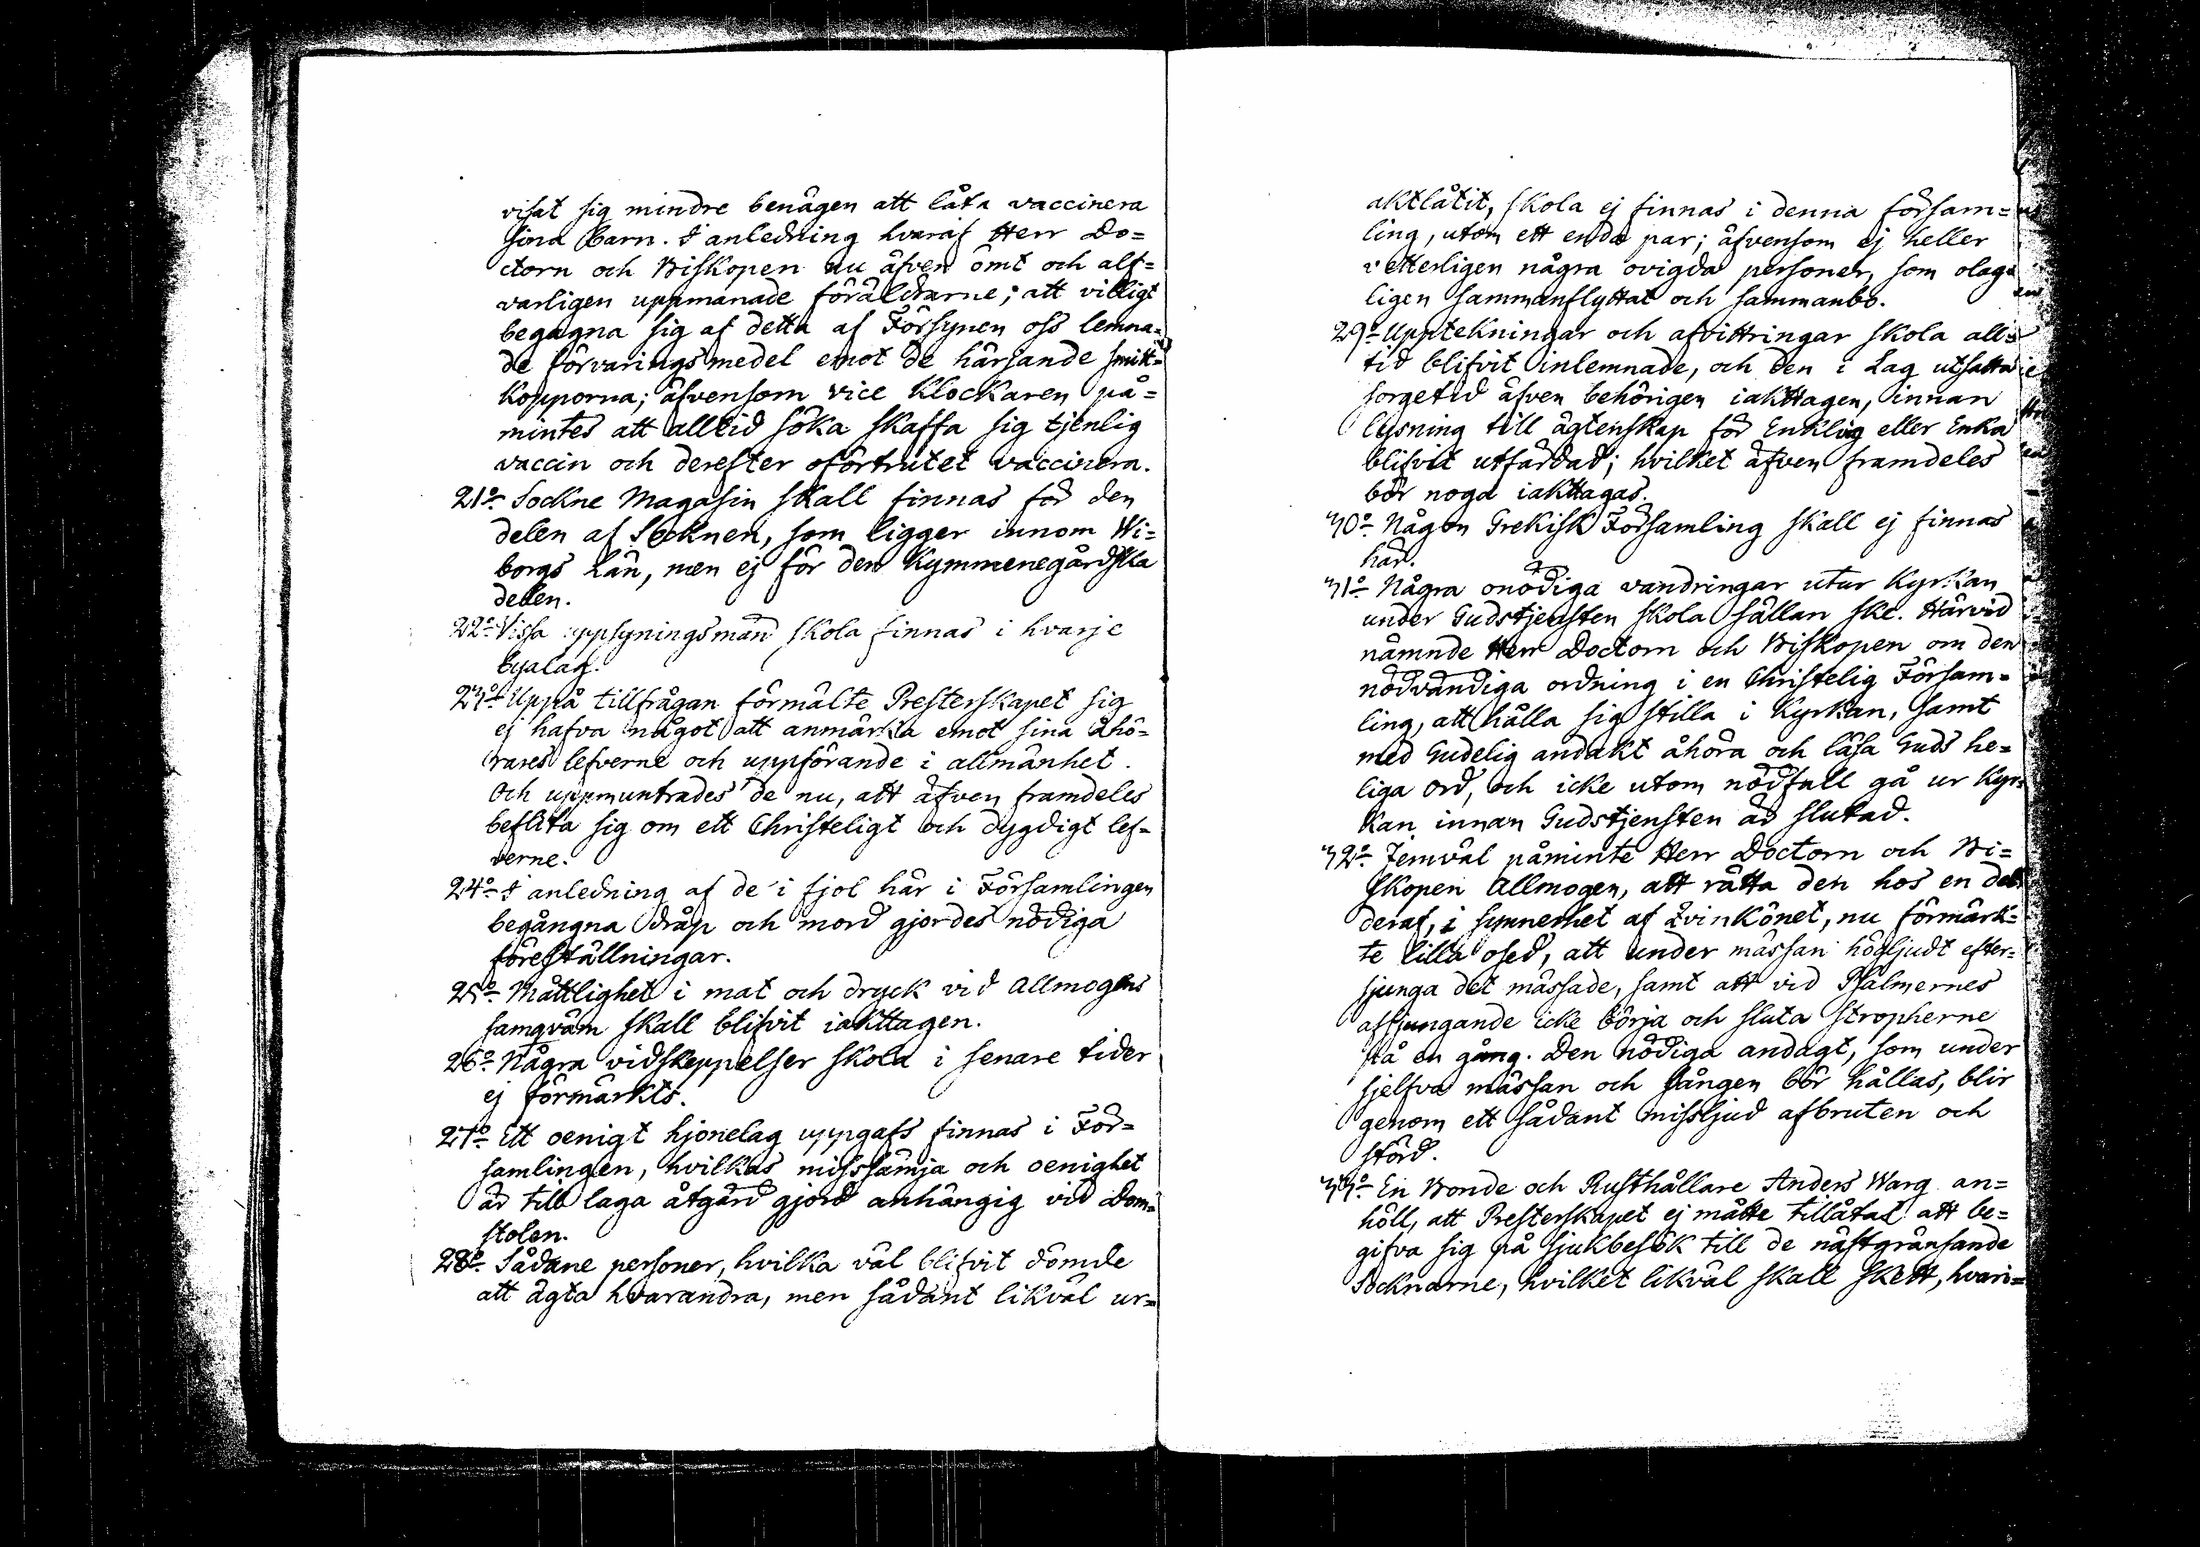 visat sig mindre benägen att låta vaccinera
sina barn. I anledning hvaraf Herr Do=
ctorn och Biskopen nu äfven ömt och all=
varligen uppmanade föräldrarne; att villigt
begagna sig af detta af Försynen oss lemna=
de förvaringsmedel emot de härjande smitt=
kopporna; äfvensom vice Klockaren på=
mintes att alltid söka skaffa sig tjenlig
vaccin och derefter oförtrutet vaccinera.
21:o Sockne Magasin skall finnas för den
delen af Socknen, som ligger innom Wi=
borgs Län, men ej för den Kymmenegårdska
delen.
22:o Vissa uppsyningsmän skola finnas i hvarje
byalag.
23:o Uppå tillfrågan förmälte Presterskapet sig
ej hafva något att anmärka emot sina åhö=
rares lefverne och uppförande i allmänhet.
Och uppmuntrades de nu, att äfven framdeles
beflita sig om ett Christeligt och dygdigt lef=
verne.
24:o I anledning af de i fjol här i Församlingen
begångna dråp och mord gjordes nödiga
föreställningar.
25:o Måttlighet i mat och dryck vid Allmogens
samqväm skall blifvit iakttagen.
26:o Några vidskeppelser skola i senare tider
ej förmärkts.
27:o Ett oenigt hjonelag uppgafs finnas i För=
samlingen, hvilkas misssämja och oenighet
är till laga åtgärd gjord anhängig vid Dom=
stolen.
28:o Sådane personer, hvilka väl blifvit dömde
att ägta hvarandra, men sådant likväl ur=
aktlåtit, skola ej finnas i denna försam=
ling, utom ett enda par; äfvensom ej heller
vetterligen några ovigda personer, som olag=
ligen sammanflyttat och sammanbo.
29:o Upptekningar och afvittringar skola all=
tid blifvit inlemnade, och den i Lag utsatta
sorgetid äfven behörigen iakttagen, innan
lysning till ägtenskap för Enkling eller Enka
blifvit utfärdad; hvilket äfven framdeles
bör noga iakttagas.
30:o Någon Grekisk Församling skall ej finnas
här.
31:o Några onödiga vandringar utur Kyrkan
under Gudstjensten skola sällan ske. Härvid
nämnde Herr Doctorn och Biskopen om den
nödvändiga ordning i en Christelig Försam=
ling, att hålla sig stilla i Kyrkan, samt
med Gudelig andakt åhöra och läsa Guds he=
liga Ord, och icke utom nödfall gå ur Kyr=
kan innan Gudstjensten är slutad.
32:o Jemväl påminte Herr Doctorn och Bi=
skopen Allmogen, att rätta den hos en del
deraf, i synnerhet af Qvinkönet, nu förmärk=
te lilla osed, att under mässan högljudt efter=
sjunga det mässade, samt att vid Psalmernes
afsjungande icke börja och sluta stropherne
på en gång. Den nödiga andagt, som under
sjelfva mässan och sången bör hållas, blir
genom ett sådant missljud afbruten och
störd.
33:o En Bonde och Rusthållare Anders Warg an=
höll, att Presterskapet ej måtte tillåtas att be=
gifva sig på sjukbesök till de nästgränsande
Socknarne, hvilket likväl skall skett, hvari=